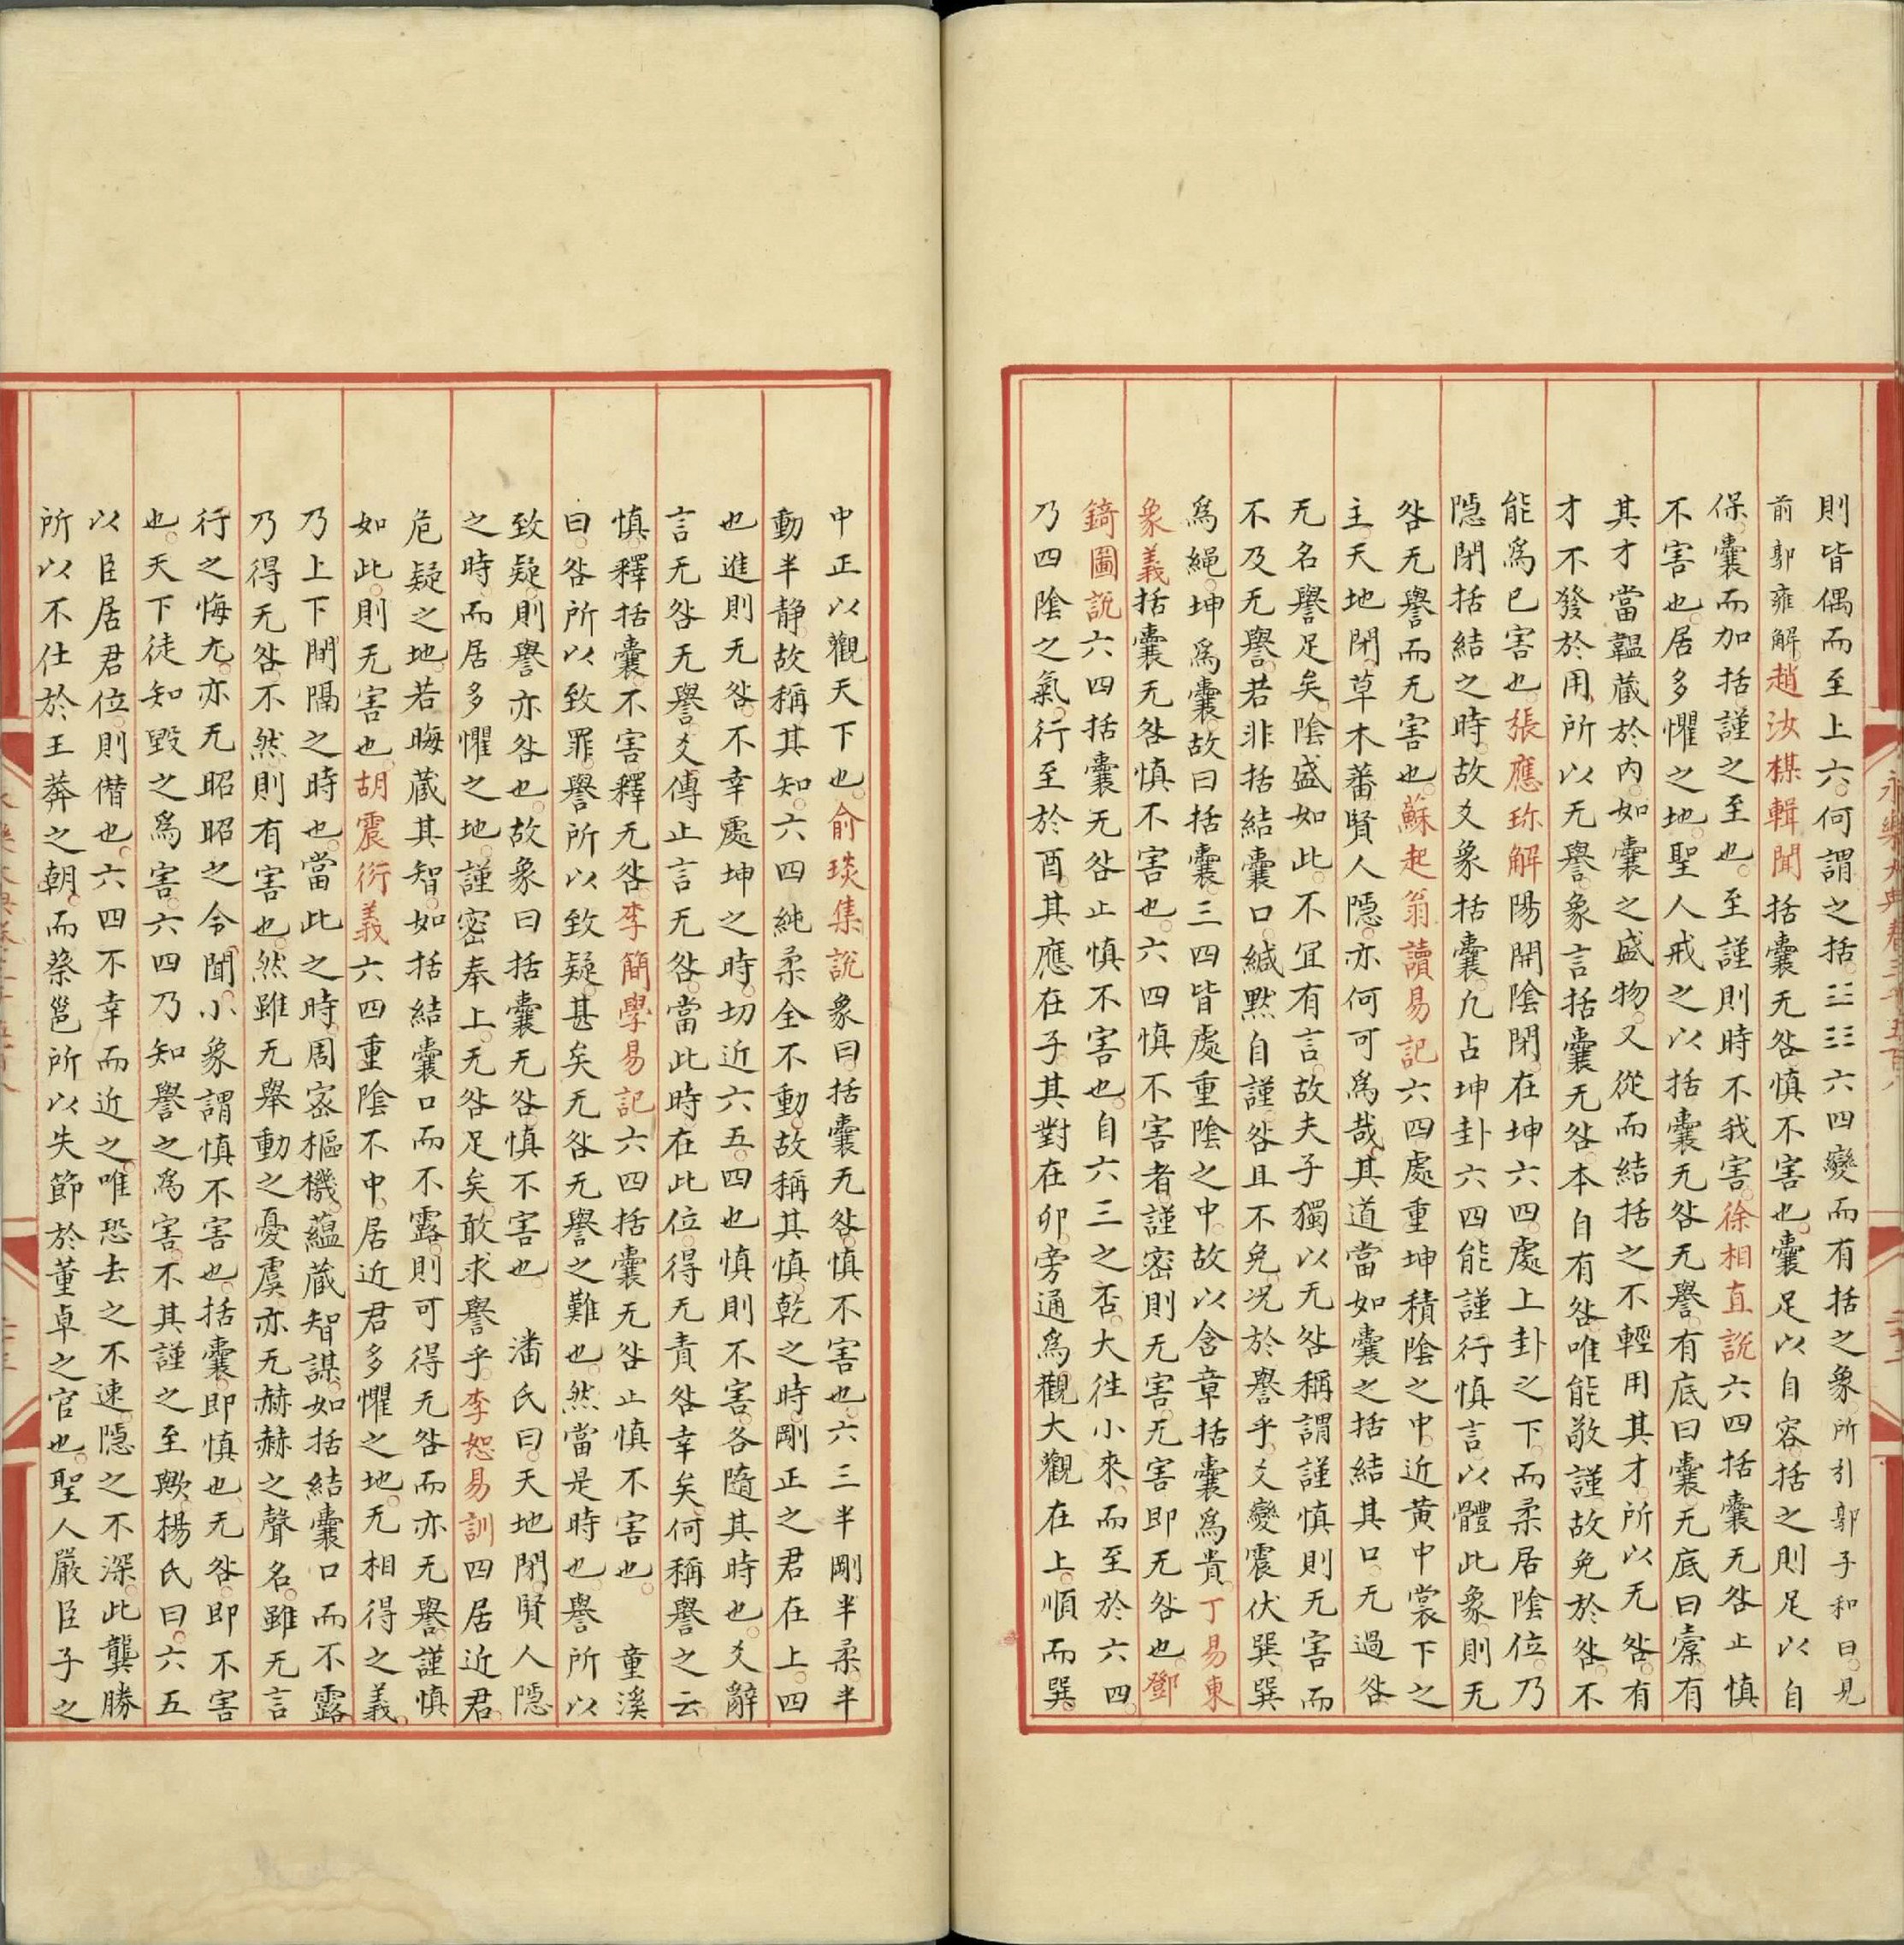 則皆偶而至上六何謂之括☷☷六四變而有括之象所引郭子和曰見
前郭雍解趙汝楳輯聞括囊无咎慎不害也囊足以自容括之則足以自
保囊而加括謹之至也至謹則時不我害徐相直說六四括囊无咎止慎
不害也居多懼之地聖人戒之以括囊无咎无譽有底曰囊无底曰橐有
其才當韞藏於內如囊之盛物又從而結括之不輕用其才所以无咎有
才不發於用所以无譽象言括囊无咎本自有咎唯能敬謹故免於咎不
能爲已害也張應珍解陽開陰閉在坤六四處上卦之下而柔居陰位乃
隱閉括結之時故爻象括囊凡占坤卦六四能謹行慎言以體此象則无
咎无譽而无害也蘇起翁讀易記六四處重坤積陰之中近黄中裳下之
主天地閉草木蕃賢人隱亦何可爲哉其道當如囊之括結其口无過咎
无名譽足矣陰盛如此不宜有言故夫子獨以无咎稱謂謹慎則无害而
不及无譽若非括結囊口緘默自謹咎且不免况於譽乎爻變震伏巽巽
爲繩坤爲囊故曰括囊三四皆處重陰之中故以含章括囊爲貴丁易東
象義括囊无咎慎不害也六四慎不害者謹密則无害无害即无咎也鄧
錡圖說六四括囊无咎止慎不害也自六三之否大往小來而至於六四
乃四陰之氣行至於酉其應在子其對在卯旁通爲觀大觀在上順而巽
中正以觀天下也俞琰集說象曰括囊无咎慎不害也六三半剛半柔半
動半静故稱其知六四純柔全不動故稱其慎乾之時剛正之君在上四
也進則无咎不幸處坤之時切近六五四也慎則不害各隨其時也爻辭
言无咎无譽爻傳止言无咎當此時在此位得无責咎幸矣何稱譽之云
慎釋括囊不害釋无咎李簡學易記六四括囊无咎止慎不害也　童溪
曰咎所以致罪譽所以致疑甚矣无咎无譽之難也然當是時也譽所以
致疑則譽亦咎也故象曰括囊无咎慎不害也　潘氏曰天地閉賢人隱
之時而居多懼之地謹密奉上无咎足矣敢求譽乎李恕易訓四居近君
危疑之地若晦藏其智如括結囊口而不露則可得无咎而亦无譽謹慎
如此則无害也胡震衍義六四重陰不中居近君多懼之地无相得之義
乃上下閉隔之時也當此之時周密樞機藴藏智謀如括結囊口而不露
乃得无咎不然則有害也然雖无舉動之憂虞亦无赫赫之聲名雖无言
行之悔尤亦无昭昭之令聞小象謂慎不害也括囊即慎也无咎即不害
也天下徒知毀之爲害六四乃知譽之爲害不其謹之至歟楊氏曰六五
以臣居君位則僭也六四不幸而近之唯恐去之不速隱之不深此龔勝
所以不仕於王莽之朝而蔡邕所以失節於董卓之官也聖人嚴臣子之